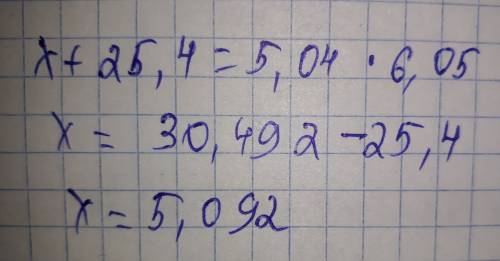 x + 25,4 = 5,04 · 6,05
x = 30,492 - 25,4
x = 5,092